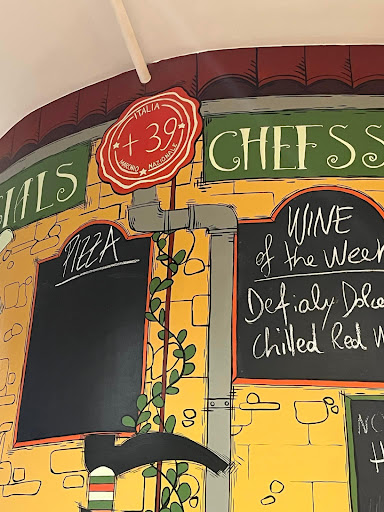 ITALIA
+ 39
MARCHIO NAZIONALE
IALS
CHEESS
PIZZA
WINE
of the Week
Defialy Dolce
Chilled Red W
NC
H